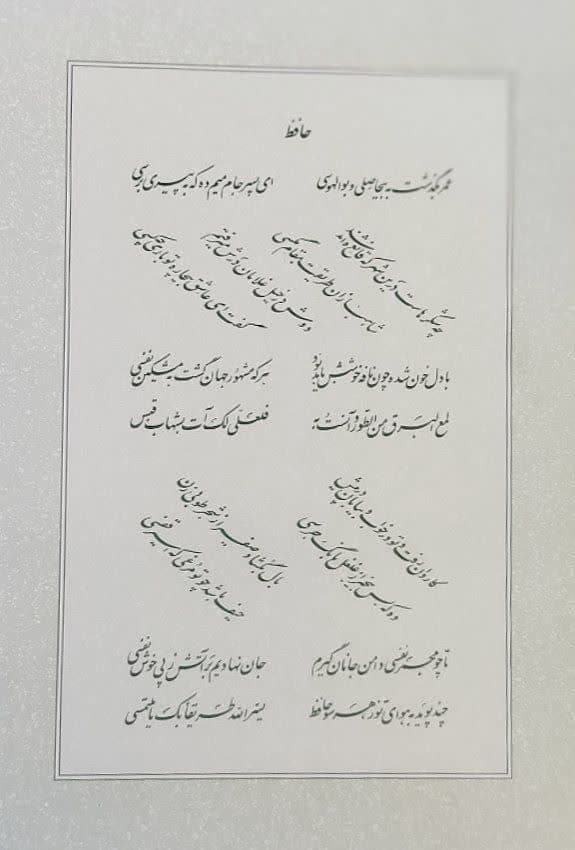 حافظ
عمر بگذشت به بیحاصلی و بوالهوسی ای پسر جام میم ده که به پیری برسی
چه شکرهاست درین شهر که قانع شده‌اند
شاهبازان طریقت بمقام مگسی
دوش در خیل غلامان درش میرفتم
گفت ای عاشق بیچاره تو باری چه کسی
با دل خون شده چون نافه خوشش باید بود هر که مشهور جهان گشت به مشکین نفسی
لمع البرق من الطور و آنست به فلعلی لک آت بشهاب قبس
کاروان رفت و تو در خواب و بیابان در پیش
وه که بس بیخبر از غلغل بانگ جرسی
بال بگشا و صفیر از شجر طوبی زن
حیف باشد چو تو مرغی که اسیر قفسی
تا چو مجمر نفسی دامن جانان گیرم جان نهادیم بر آتش ز پی خوش نفسی
چند پوید به هوای تو ز هر سو حافظ یسر الله طریقا بک یا ملتمسی